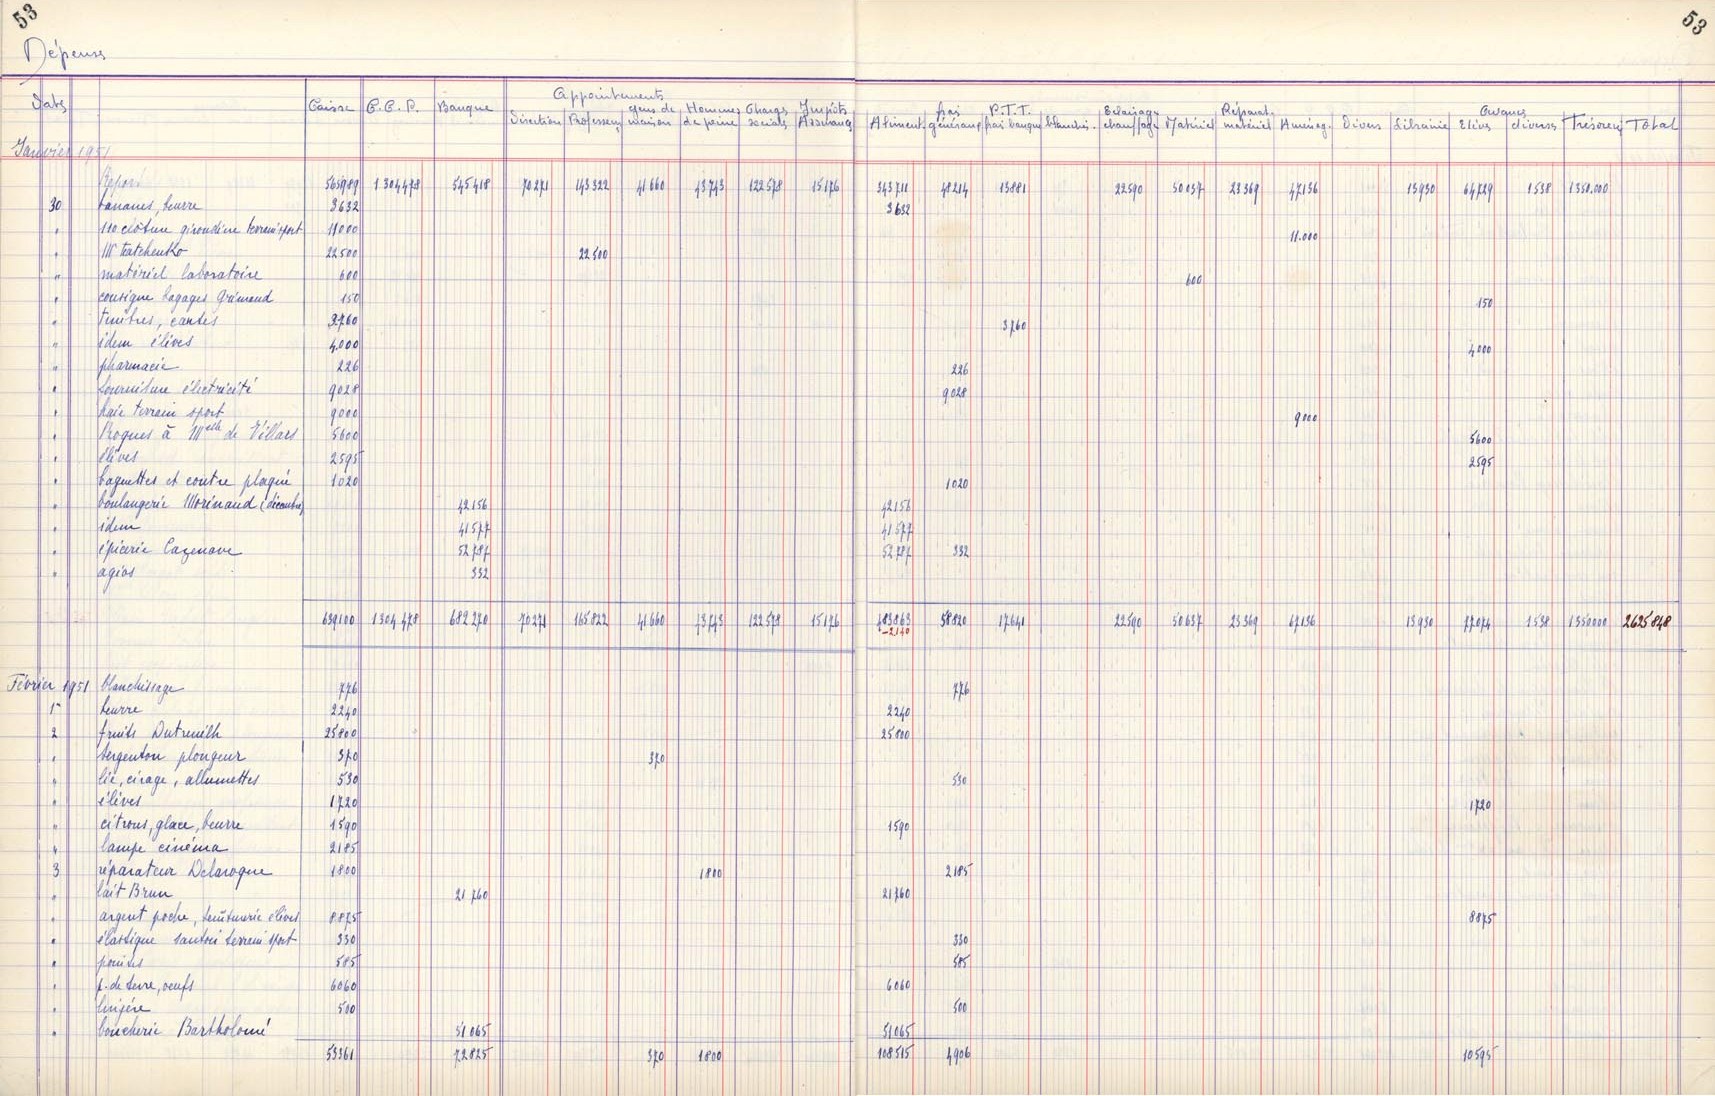 53
53
Dépenses
Appointements
Avances
Dates Caisse C.C.P. Banque Direction Professeurs gens de maison Hommes de peine Charges sociales Impôts Assurances Aliment. frais généraux P.T.T. frais banque blanchis. Eclairage chauffage Matériel Réparat. matériel Aménag. Divers Librairie Elèves diverses Trésorerie Total
Janvier 1951
Report 565989 1304478 545418 70271 143322 41660 43743 122578 15176 343711 48214 13881 22590 50037 23369 47136 13930 64729 1538 1350.000
30 bananes, beurre 3632 3632
" 110 clôture girondine terrain sport 11000 11.000
" Mr Tcatchenko 22500 22500
" matériel laboratoire 600 600
" consigne bagages Grimaud 150 150
" timbres, cartes 3760 3760
" idem élèves 4000 4000
" pharmacie 226 226
" fourniture électricité 9028 9028
" haie terrain sport 9000 9000
" Roques à Melle de Villars 5600 5600
" élèves 2595 2595
" baguettes et contre plaqué 1020 1020
" boulangerie Morinaud (décembre) 42156 42156
" idem 41577 41577
" épicerie Cazenave 52787 52787 332
" agios 332
639100 1304478 682270 70271 165822 41660 43743 122578 15176 483863 58820 17641 22590 50637 23369 67136 13930 77074 1538 1350000 2625848
-2140
Février 1951 blanchissage 776 776
1er beurre 2240 2240
2 fruits Dutreuilh 25800 25800
" Sergenton plongeur 370 370
" lie, cirage, allumettes 530 530
" élèves 1720 1720
" citrons, glace, beurre 1590 1590
" lampe cinéma 2185
3 réparateur Delaroque 1800 1800 2185
" lait Brun 21760 21760
" argent poche, teinturerie élèves 8875 8875
" élastique sautoir terrain sport 330 330
" pointes 585 585
" p. de terre, oeufs 6060 6060
" lingère 500 500
" boucherie Bartholomé 51065 51065
53361 72825 370 1800 108515 4906 10595